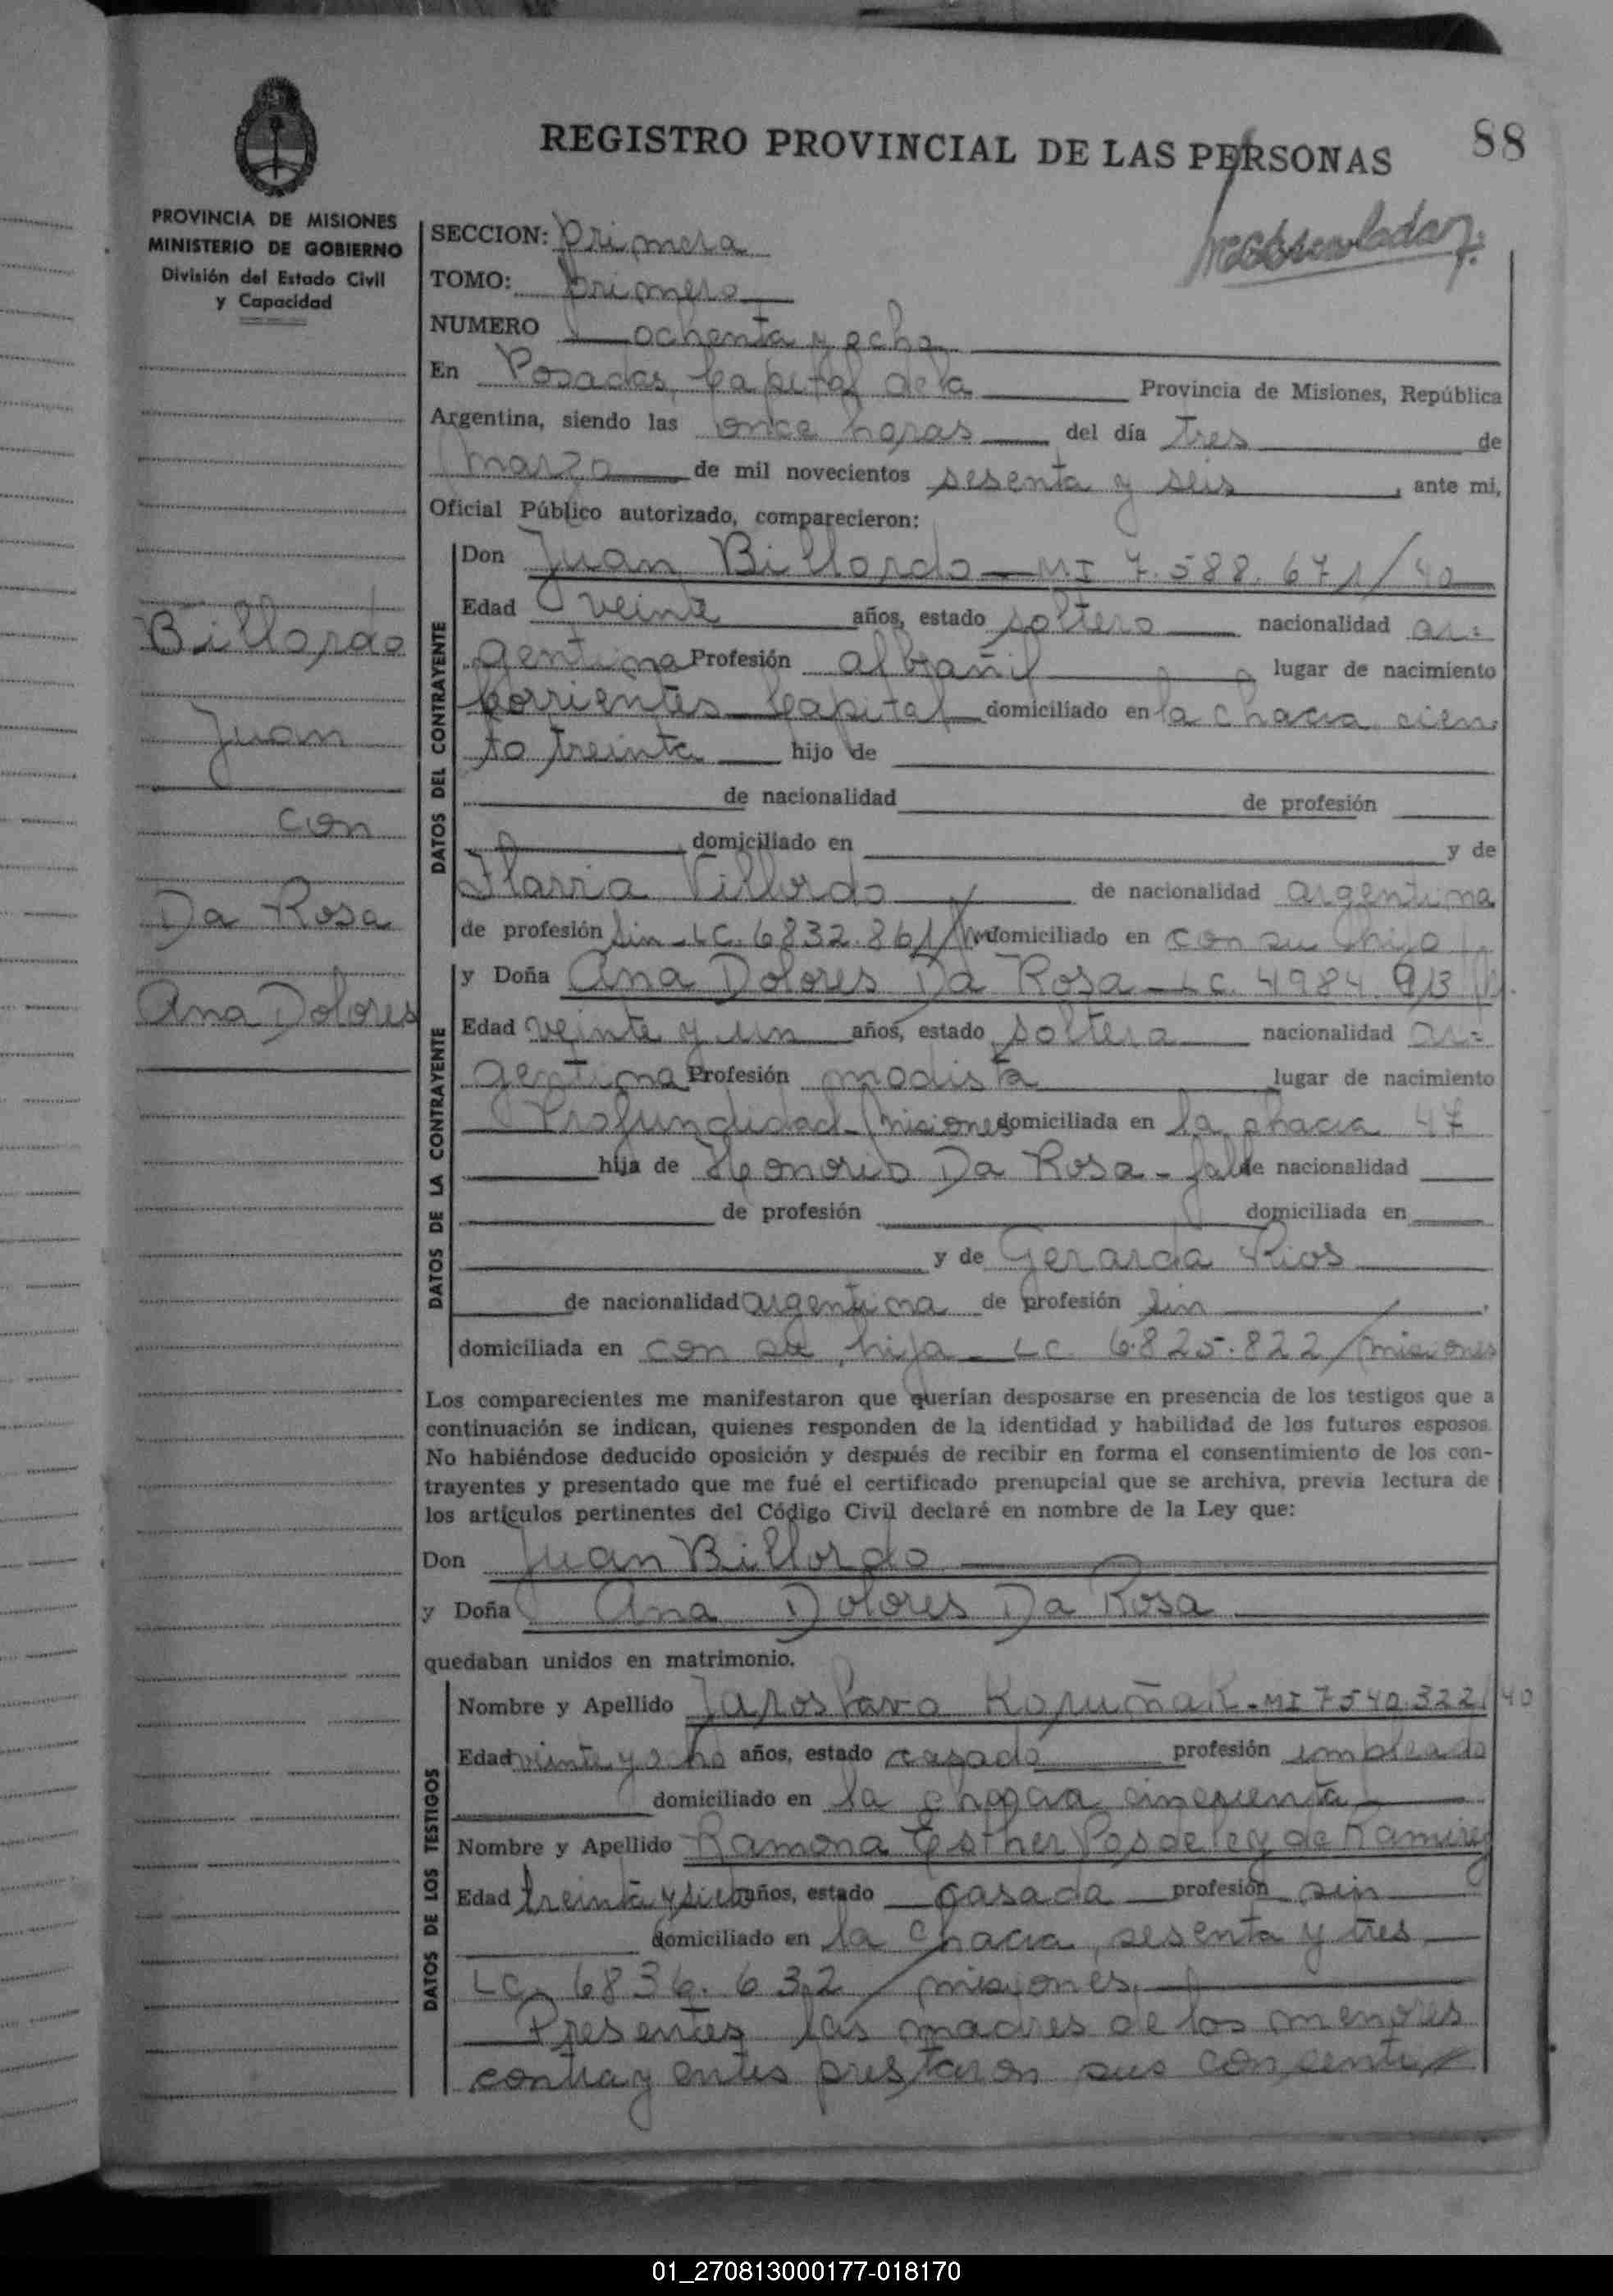 REGISTRO PROVINCIAL DE LAS PERSONAS
88
PROVINCIA DE MISIONES
MINISTERIO DE GOBIERNO
División del Estado Civil
y Capacidad
Billordo
Juan
con
Da Rosa
Ana Dolores
SECCION: primera
TOMO: primero
NUMERO ochenta y ocho
En Posadas, Capital de la Provincia de Misiones, República
Argentina, siendo las once horas del día tres de
marzo de mil novecientos sesenta y seis, ante mi,
Oficial Público autorizado, comparecieron:
DATOS DEL CONTRAYENTE
Don Juan Billordo - MI 7.588.671/40
Edad veinte años, estado soltero nacionalidad ar=
gentina Profesión albañil lugar de nacimiento
Corrientes Capital domiciliado en la chacra cien
to treinta hijo de
de nacionalidad de profesión
domiciliado en y de
Ilaria Villordo de nacionalidad argentina
de profesión sin - LC. 6832.861/M domiciliado en con su hijo
DATOS DE LA CONTRAYENTE
y Doña Ana Dolores Da Rosa - LC. 4984.913
Edad veinte y un años, estado soltera nacionalidad ar=
gentina Profesión modista lugar de nacimiento
Profundidad - Misiones domiciliada en la chacra 47
hija de Honorio Da Rosa - fall de nacionalidad
de profesión domiciliada en
y de Gerarda Rios
de nacionalidad argentina de profesión sin
domiciliada en con su hija - LC. 6.825.822/Misiones
Los comparecientes me manifestaron que querían desposarse en presencia de los testigos que a
continuación se indican, quienes responden de la identidad y habilidad de los futuros esposos.
No habiéndose deducido oposición y después de recibir en forma el consentimiento de los con-
trayentes y presentado que me fué el certificado prenupcial que se archiva, previa lectura de
los artículos pertinentes del Código Civil declaré en nombre de la Ley que:
Don Juan Billordo
y Doña Ana Dolores Da Rosa
quedaban unidos en matrimonio.
DATOS DE LOS TESTIGOS
Nombre y Apellido Jaroslavo Koruñak - MI 7540.322/40
Edad veinte y ocho años, estado casado profesión empleado
domiciliado en la chacra cincuenta
Nombre y Apellido Ramona Esther Posdeley de Ramirez
Edad treinta y siete años, estado casada profesión sin
domiciliado en la chacra sesenta y tres
LC. 6836.632/misiones.
Presentes las madres de los menores
contrayentes prestaron sus concenti
01_270813000177-018170